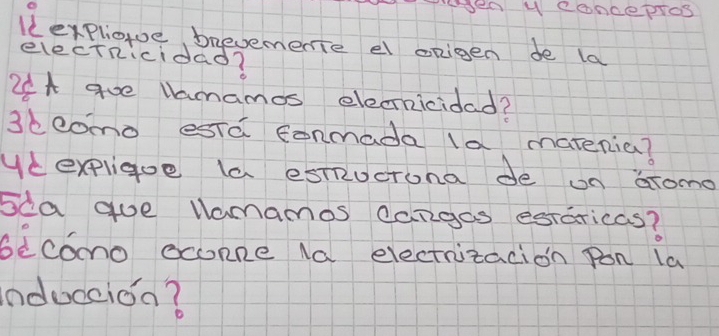 origen y conceptos
1¿ explique brevemente el origen de la
electricidad?
2¿A que llamamos electricidad?
3¿como está formada la materia?
4¿explique la estructura de un átomo
5¿a que llamamos cargas estáticas?
6¿cómo ocurre la electrización por la
inducción?